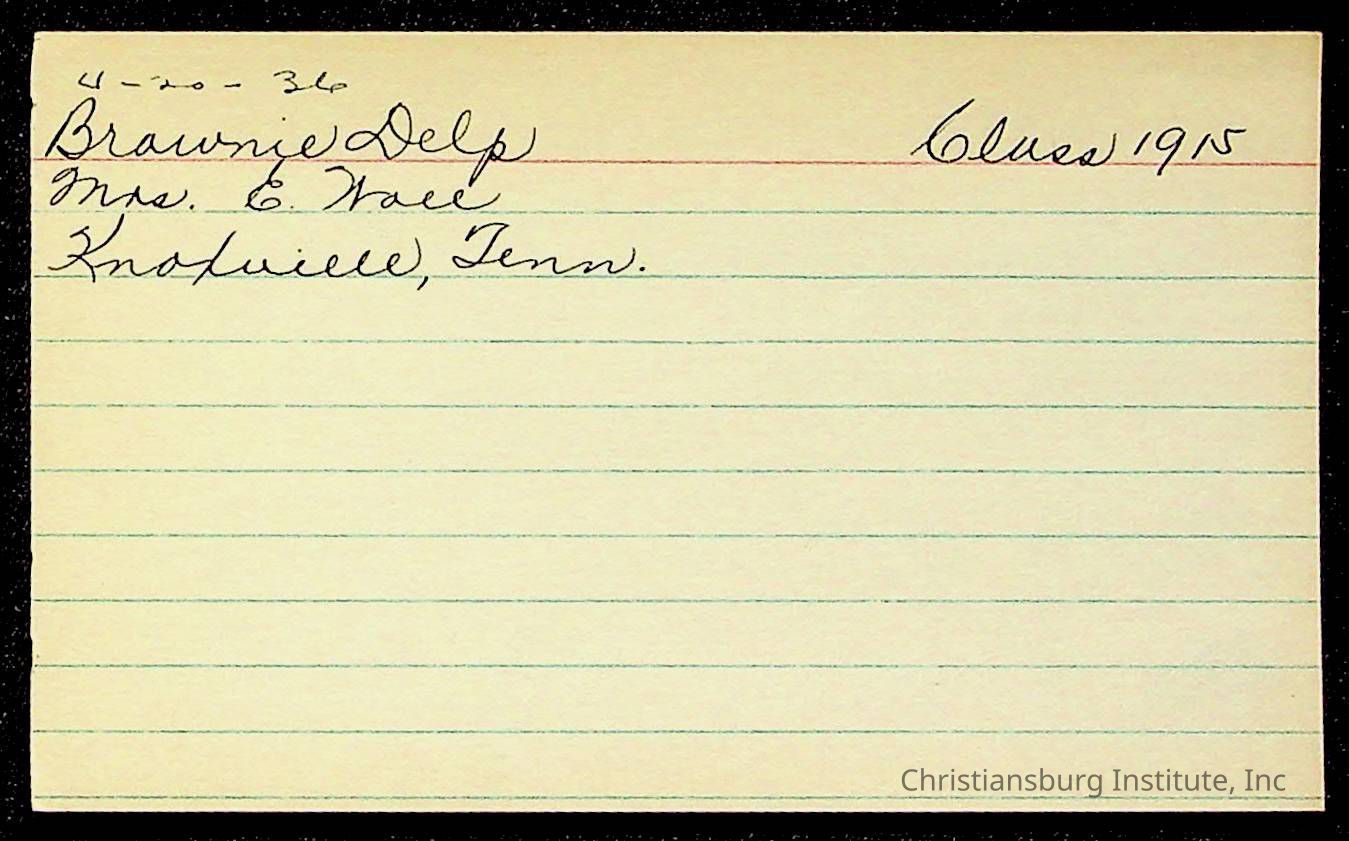 4-20-36
Brownie Delp Class 1915
Mrs. E. Wall
Knoxville, Tenn.
Christiansburg Institute, Inc